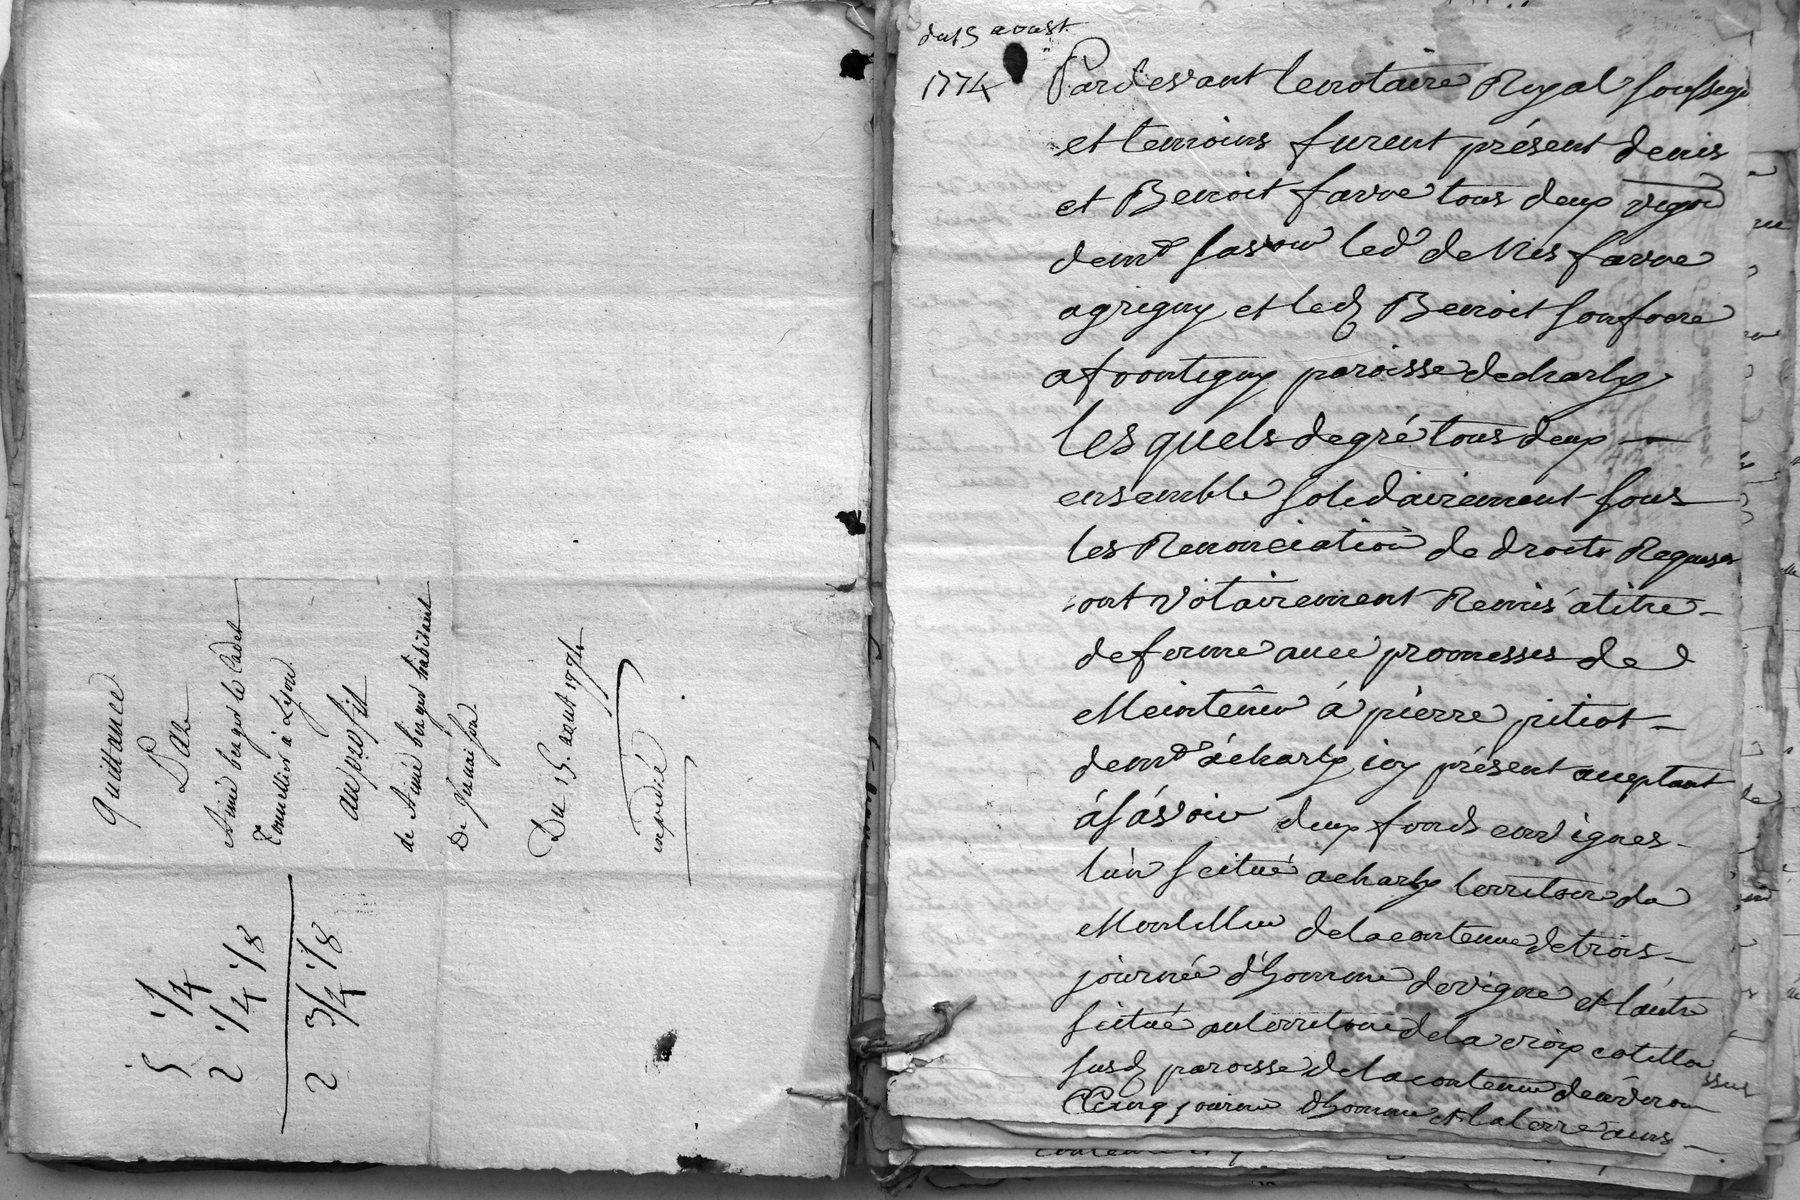 quittance
Par
Aimé berger le Cadet
Tonnellier à Lyon
au profit
de Aimé berger habitant
De
Du 15. aout 1774
expedié
5 1/4
2 1/4 1/8
2 3/4 1/8
du 15 aoust
1774
Pardevant le notaire Royal soussigné
et temoins furent présent denis
et Benoit favre tous deux vigon
dem.t sasvoir led. denis favre
a grigny et led. Benoit son frere
a frontigny paroisse de charly
les quels de gré tous deux
ensemble solidairement sous
les Renonciation de droits Requises
ont volairement Remis a titre
de ferme avec promesses de
Meintenir á pierre pitiot
dem.t á charly icy présent aceptant
á sásvoir deux fonds en vignes
lún scitué a charly territoire de
de la contenue de trois
journée d'homme de vigne et l'autre
scitué au territoire de la croix
susd. paroisse de la contenue denviron
Cinq journé d'homme et la terre aussi